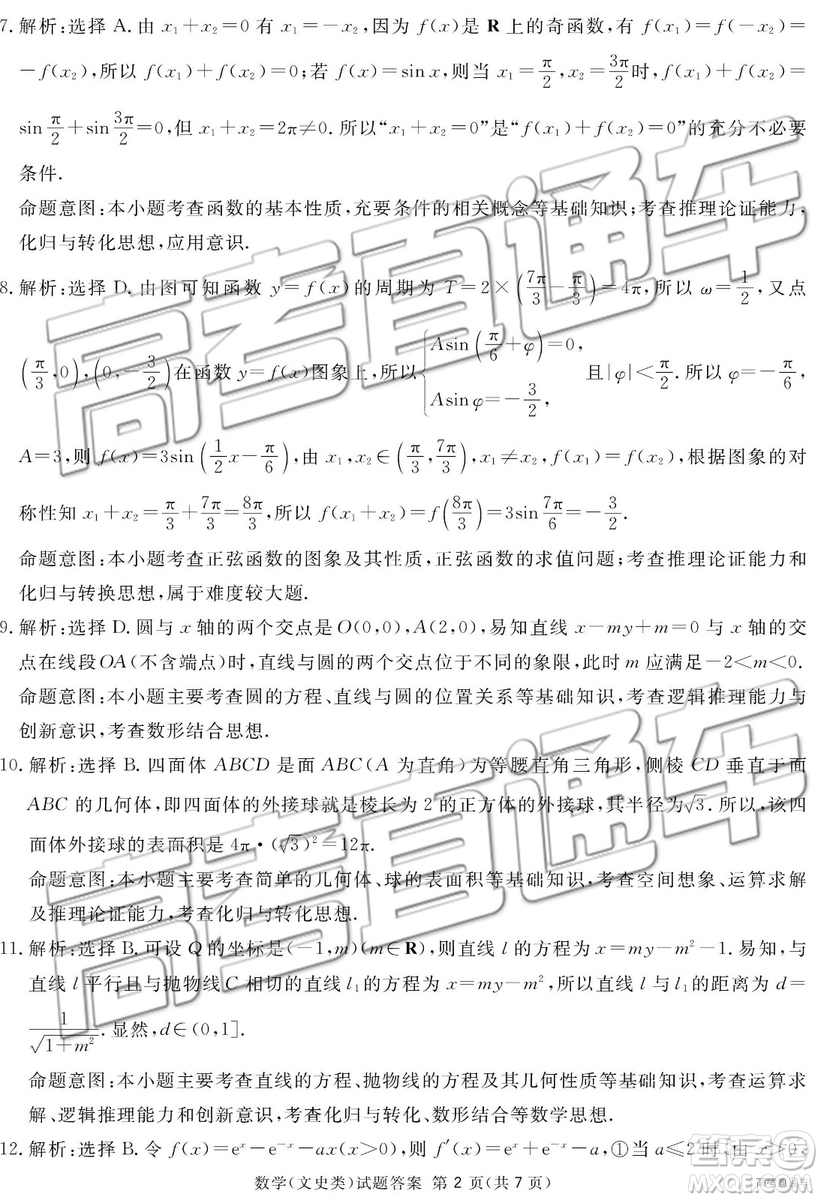 7. 解析:选择 A. 由 x₁+x₂=0 有 x₁=-x₂,因为 f(x)是 R 上的奇函数,有 f(x₁)=f(-x₂)=
-f(x₂),所以 f(x₁)+f(x₂)=0;若 f(x)=sin x,则当 x₁=π/2,x₂=3π/2时,f(x₁)+f(x₂)=
sin π/2+sin 3π/2=0,但 x₁+x₂=2π≠0.所以“x₁+x₂=0”是“f(x₁)+f(x₂)=0”的充分不必要
条件.
命题意图:本小题考查函数的基本性质,充要条件的相关概念等基础知识;考查推理论证能力,
化归与转化思想,应用意识.
8. 解析:选择 D. 由图可知函数 y=f(x)的周期为 T=2×(7π/3-π/3)=4π,所以 ω=1/2,又点
(π/3,0),(0,-3/2)在函数 y=f(x)图象上,所以{Asin(π/6+φ)=0, Asin φ=-3/2, 且|φ|<π/2.所以 φ=-π/6,
A=3,则 f(x)=3sin(1/2x-π/6),由 x₁,x₂∈(π/3,7π/3),x₁≠x₂,f(x₁)=f(x₂),根据图象的对
称性知 x₁+x₂=π/3+7π/3=8π/3,所以 f(x₁+x₂)=f(8π/3)=3sin 7π/6=-3/2.
命题意图:本小题考查正弦函数的图象及其性质,正弦函数的求值问题;考查推理论证能力和
化归与转换思想,属于难度较大题.
9. 解析:选择 D. 圆与 x 轴的两个交点是 O(0,0),A(2,0),易知直线 x-my+m=0 与 x 轴的交
点在线段OA(不含端点)时,直线与圆的两个交点位于不同的象限,此时 m 应满足-2<m<0.
命题意图:本小题主要考查圆的方程、直线与圆的位置关系等基础知识,考查逻辑推理能力与
创新意识,考查数形结合思想.
10. 解析:选择 B. 四面体 ABCD 是面 ABC(A 为直角)为等腰直角三角形,侧棱 CD 垂直于面
ABC 的几何体,即四面体的外接球就是棱长为 2 的正方体的外接球,其半径为√3.所以,该四
面体外接球的表面积是 4π·(√3)²=12π.
命题意图:本小题主要考查简单的几何体、球的表面积等基础知识,考查空间想象、运算求解
及推理论证能力,考查化归与转化思想.
11. 解析:选择 B. 可设 Q 的坐标是(-1,m)(m∈R),则直线 l 的方程为 x=my-m²-1.易知,与
直线 l 平行且与抛物线C 相切的直线 l₁的方程为 x=my-m²,所以直线 l 与 l₁的距离为 d=
1/√(1+m²).显然,d∈(0,1].
命题意图:本小题主要考查直线的方程、抛物线的方程及其几何性质等基础知识,考查运算求
解、逻辑推理能力和创新意识,考查化归与转化、数形结合等数学思想.
12. 解析:选择 B. 令 f(x)=eˣ-e⁻ˣ-ax(x>0),则 f′(x)=eˣ+e⁻ˣ-a,①当 a≤2时,由 x>0,
数学(文史类)试题答案 第 2 页(共 7 页)
高考直通车
高考直通车